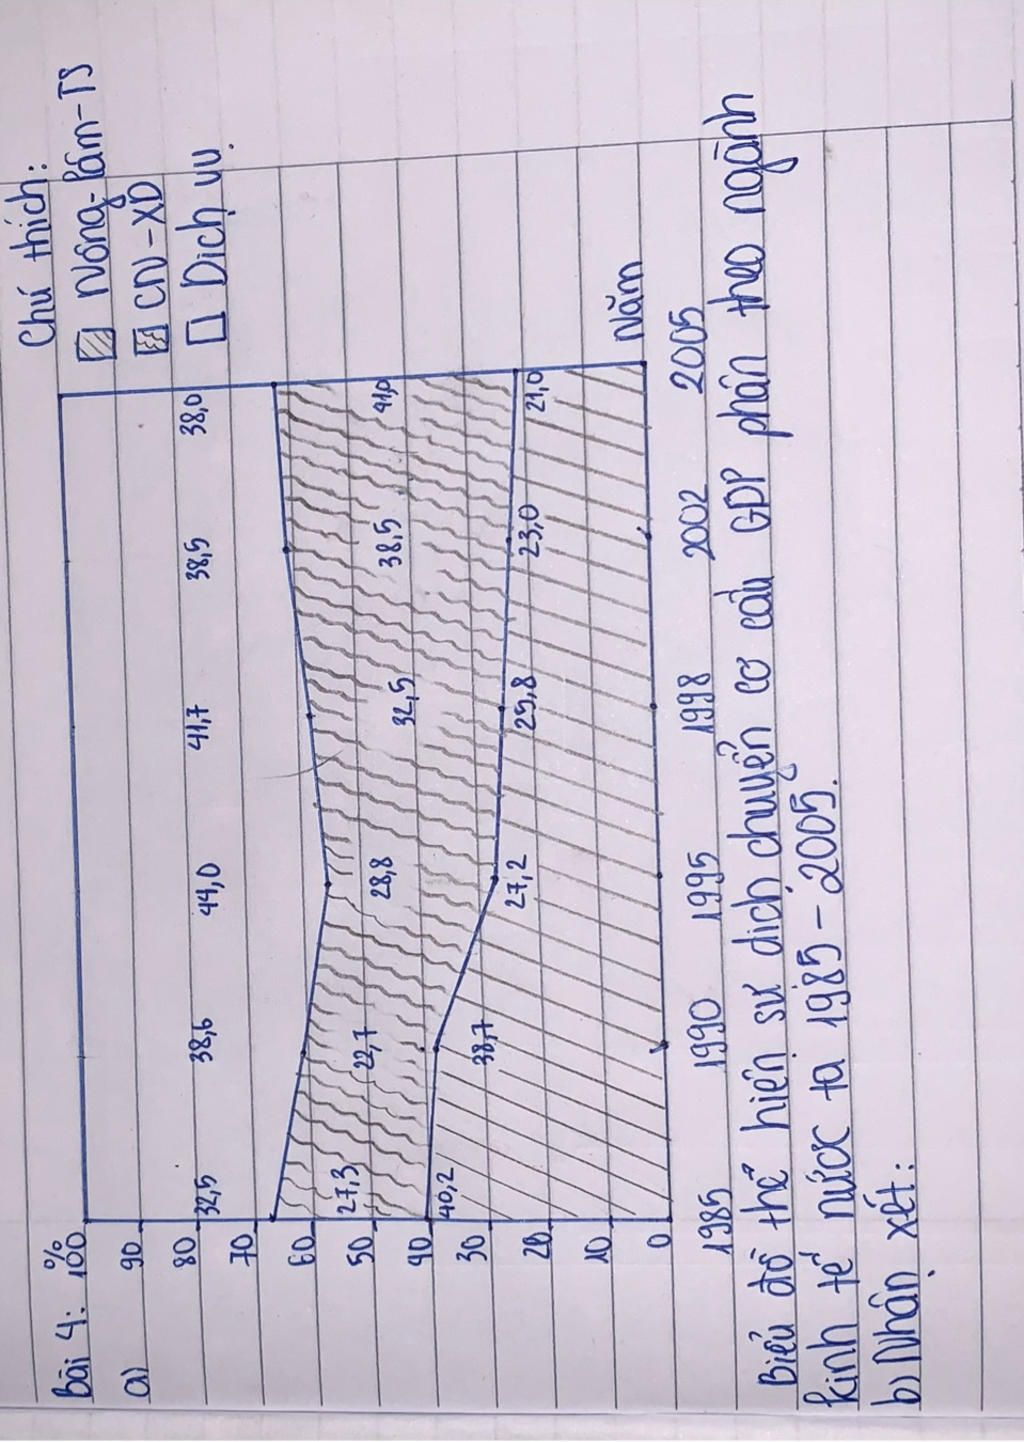 Bài 4:
a)
%
100
90
80
70
60
50
40
30
20
10
0
Chú thích:
Nông-Lâm-TS
CN-XD
Dịch vụ.
32,5 38,6 44,0 41,7 38,5 38,0
27,3 22,7 28,8 32,5 38,5 41,0
40,2 38,7 27,2 25,8 23,0 21,0
1985 1990 1995 1998 2002 2005 Năm
Biểu đồ thể hiện sự dịch chuyển cơ cấu GDP phân theo ngành
kinh tế nước ta 1985-2005.
b) Nhận xét: